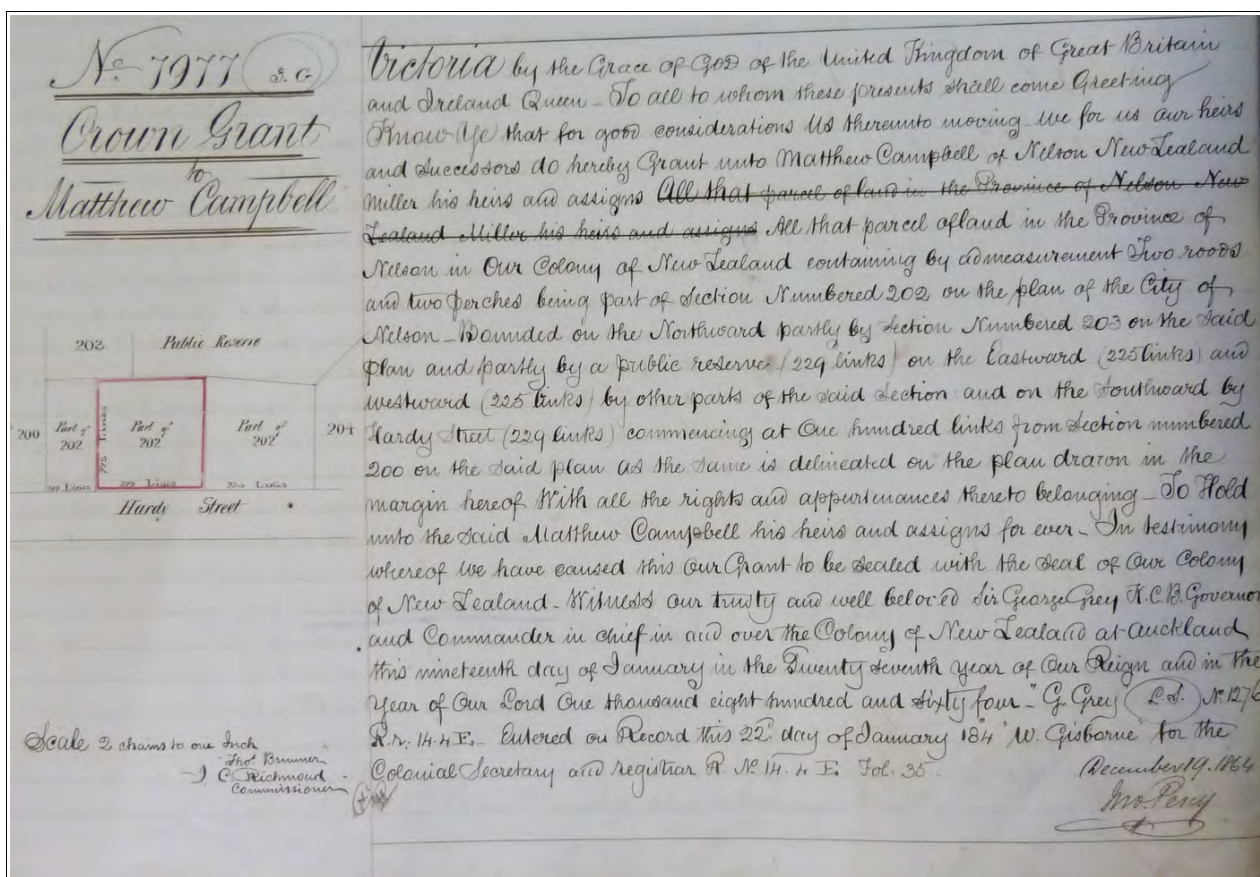 No. 7977 S. G
Crown Grant
to
Matthew Campbell
203 Public Reserve
200 Part of 202 Part of 202 Part of 202 204
225 Links
100 Links 229 Links Links
Hardy Street
Scale 2 chains to one Inch
Thos. Brunner
J C Richmond
Commissioner
Victoria by the Grace of GOD of the United Kingdom of Great Britain
and Ireland Queen - To all to whom these presents shall come Greeting
Know Ye that for good considerations Us thereunto moving We for us our heirs
and Successors do hereby Grant unto Matthew Campbell of Nelson New Zealand
Miller his heirs and assigns All that parcel of land in the Province of Nelson New
Zealand Miller his heirs and assigns All that parcel of land in the Province of
Nelson in Our Colony of New Zealand containing by admeasurement Two roods
and two perches being part of Section Numbered 202 on the plan of the City of
Nelson - Bounded on the Northward partly by Section Numbered 203 on the Said
plan and partly by a public reserve (229 links) on the Eastward (225 links) and
westward (225 links) by other parts of the said Section and on the Southward by
Hardy Street (229 links) commencing at One hundred links from Section numbered
200 on the said plan as the same is delineated on the plan drawn in the
margin hereof With all the rights and appurtenances thereto belonging - To Hold
unto the said Matthew Campbell his heirs and assigns for ever - In testimony
whereof We have caused this Our Grant to be sealed with the seal of Our Colony
of New Zealand - Witness our trusty and well beloved Sir George Grey K.C.B. Governor
and Commander in chief in and over the Colony of New Zealand at Auckland
this nineteenth day of January in the Twenty seventh Year of Our Reign and in the
Year of Our Lord One thousand eight hundred and sixty four - "G. Grey L.S. No. 127/6
R.N. 14.4 E. Entered on Record this 22d day of January 184 "W. Gisborne" for the
Colonial Secretary and registrar R No 14. 4 E. Fol. 35.
December 19. 1864